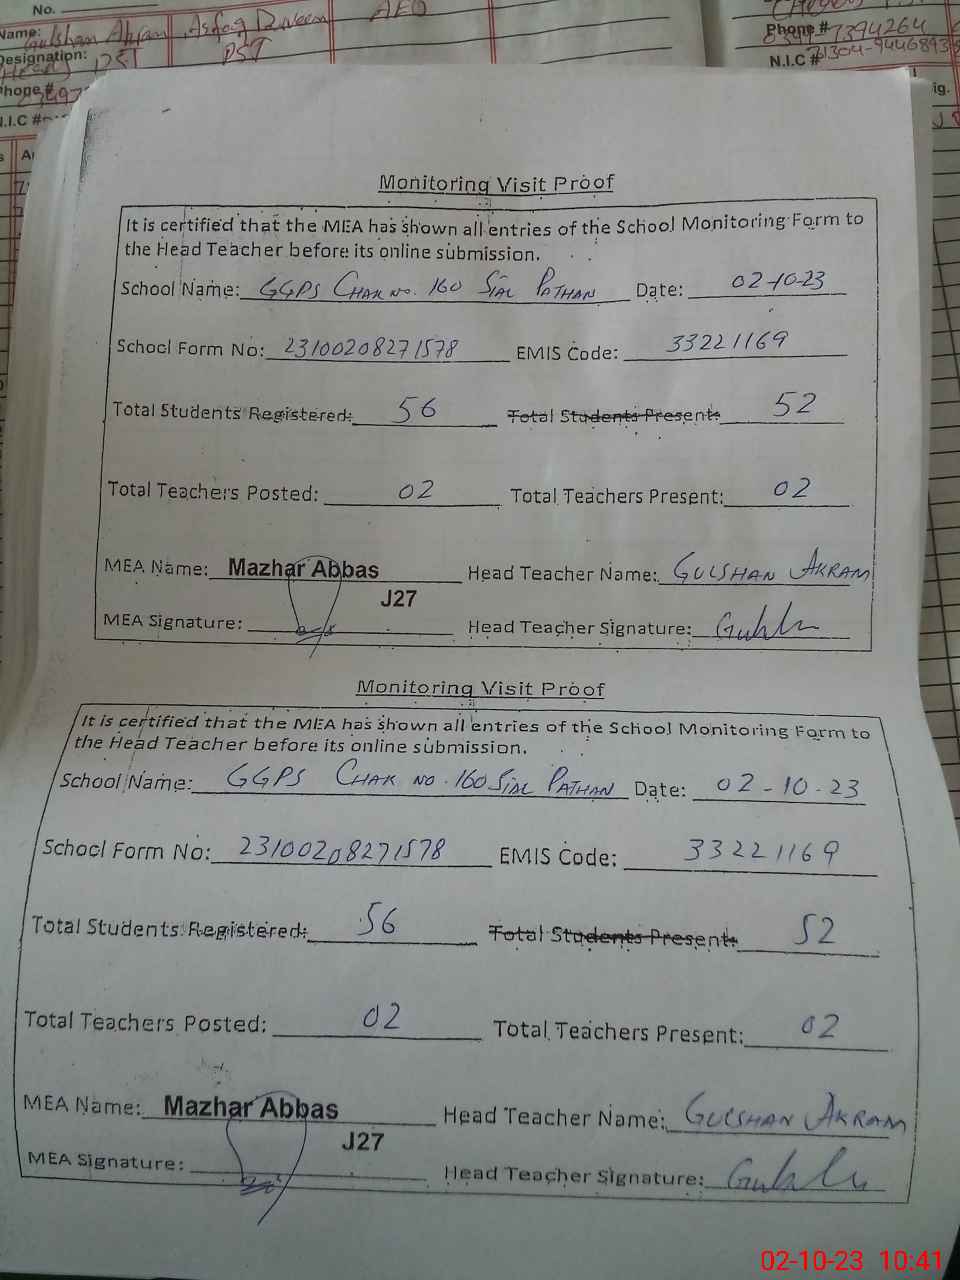 No.
Name: Gulshan Akram, Asfaq Parveen AEO
Designation: Head PST PST
Phone #
N.I.C #
Phone # 7394264
N.I.C # 31304-9446893
ig.
Monitoring Visit Proof
It is certified that the MEA has shown all entries of the School Monitoring Form to
the Head Teacher before its online submission.
School Name: GGPS CHAK NO. 160 SIAL PATHAN Date: 02-10-23
School Form No: 23100208271578 EMIS Code: 33221169
Total Students Registered: 56 Total Students Present: 52
Total Teachers Posted: 02 Total Teachers Present: 02
MEA Name: Mazhar Abbas Head Teacher Name: GULSHAN AKRAM
J27
MEA Signature: Head Teacher Signature:
Monitoring Visit Proof
It is certified that the MEA has shown all entries of the School Monitoring Form to
the Head Teacher before its online submission.
School Name: GGPS CHAK NO. 160 SIAL PATHAN Date: 02-10-23
School Form No: 23100208271578 EMIS Code: 33221169
Total Students Registered: 56 Total Students Present: 52
Total Teachers Posted: 02 Total Teachers Present: 02
MEA Name: Mazhar Abbas Head Teacher Name: GULSHAN AKRAM
J27
MEA Signature: Head Teacher Signature:
02-10-23 10:41